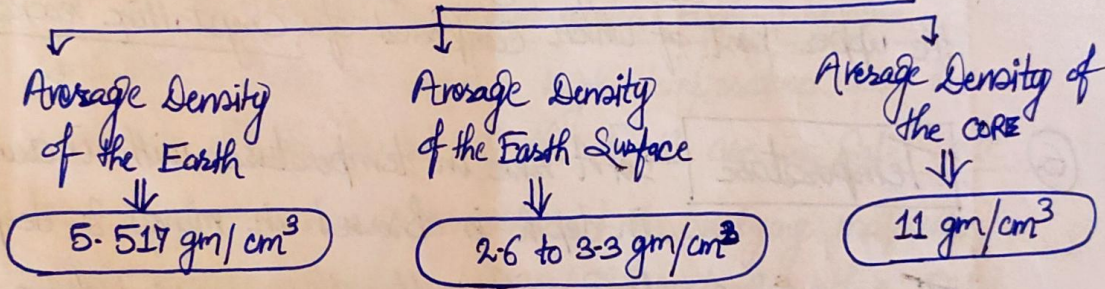 Average Density
of the Earth
5.517 gm/cm³
Average Density
of the Earth Surface
2.6 to 3.3 gm/cm³
Average Density of
the CORE
11 gm/cm³